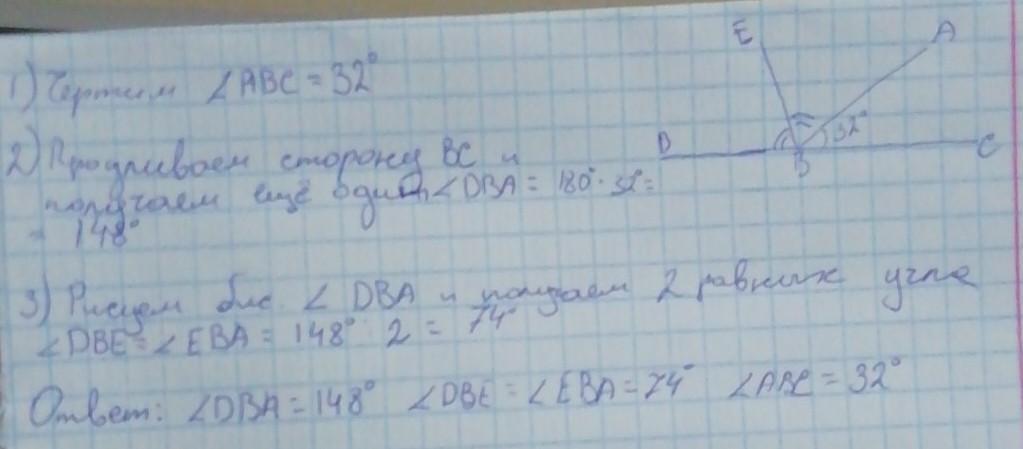 E A
1) Чертим ∠ABC = 32°
32°
D B C
2) Продливаем сторону BC и
получаем ещё один ∠DBA = 180° - 32° =
= 148°
3) Рисуем бис ∠ DBA и получаем 2 равных угла
∠DBE = ∠EBA = 148° : 2 = 74°
Ответ: ∠DBA = 148° ∠DBE = ∠EBA = 74° ∠ABC = 32°